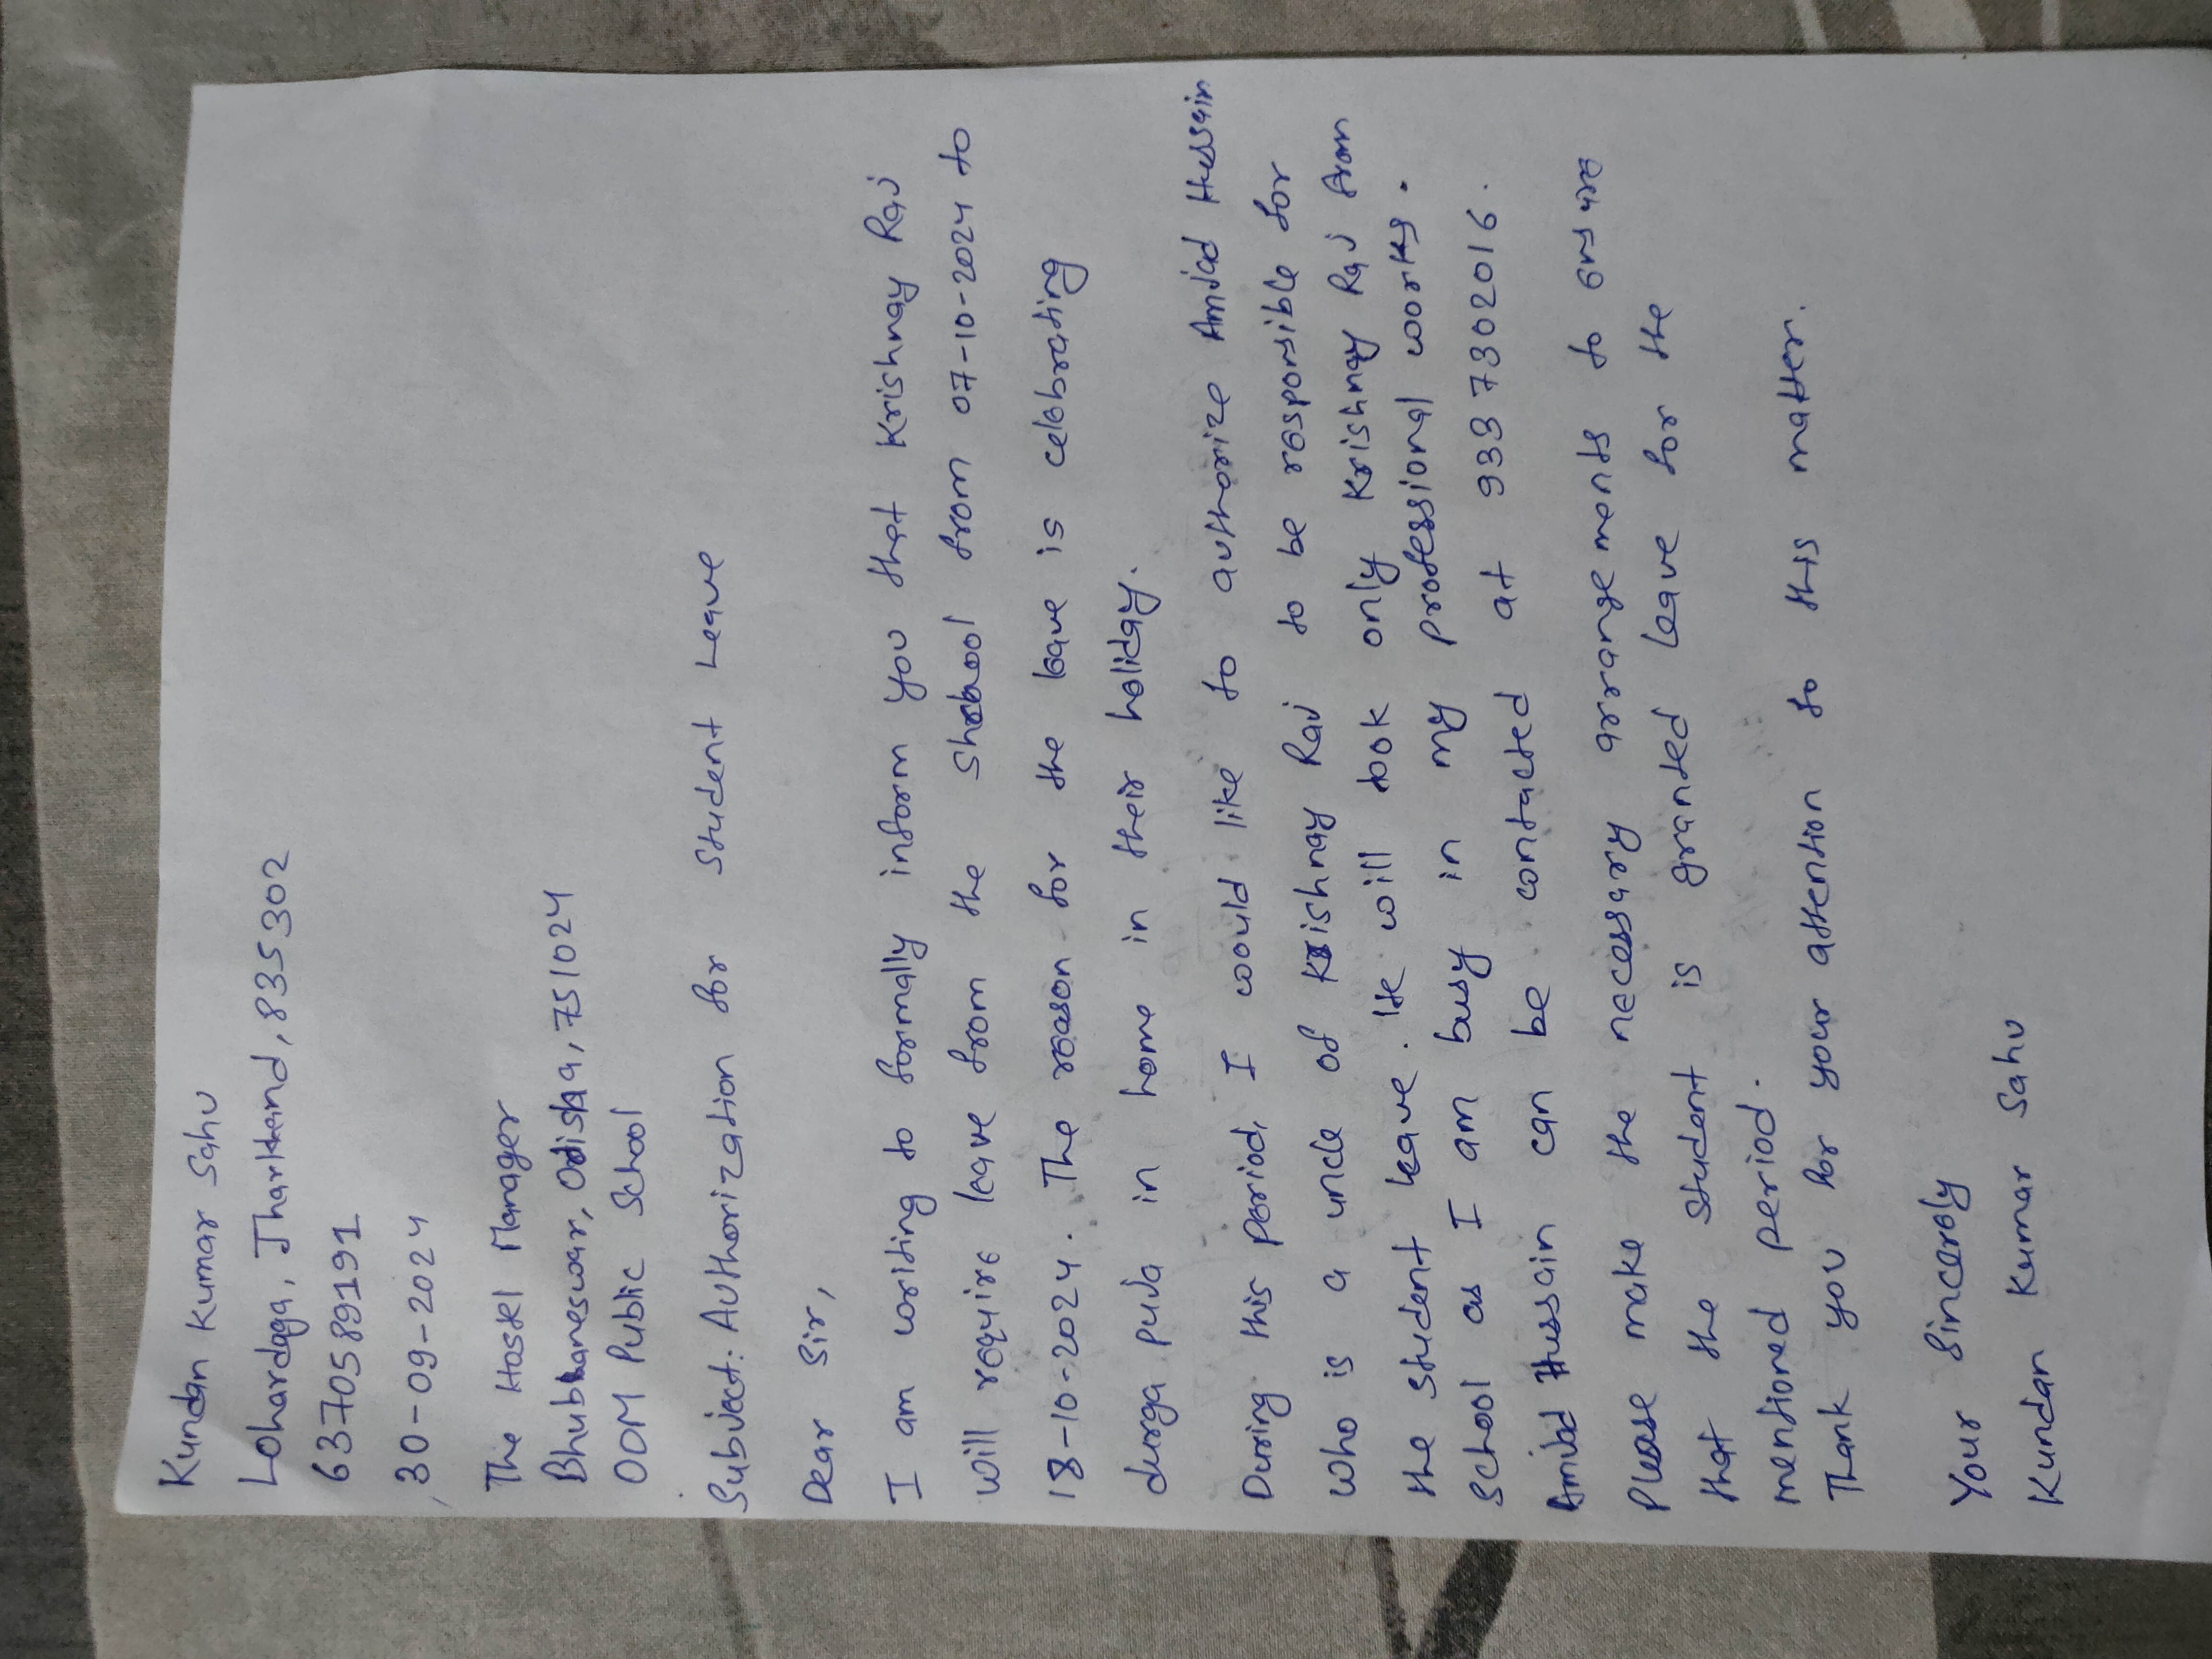 Kundan Kumar Sahu
Lohardaga, Jharkhand, 835302
6370589191
30-09-2024
The Hostel Manager
Bhubhaneswar, Odisha, 751024
ODM Public School
Subject: Authorization for Student Leave
Dear Sir,
I am writing to formally inform you that Krishnay Raj
will require leave from the school from 07-10-2024 to
18-10-2024. The reason for the leave is celebrating
durga puja in home in their holiday.
During this period, I would like to authorize Amjad Hussain
who is a uncle of Krishnay Raj to be responsible for
the student leave. He will took only Krishnay Raj from
school as I am busy in my professional works.
Amjad Hussain can be contacted at 9337302016.
Please make the necessary arrangements to ensure
that the student is granted leave for the
mentioned period.
Thank you for your attention to this matter.
Your Sincerely
Kundan Kumar Sahu